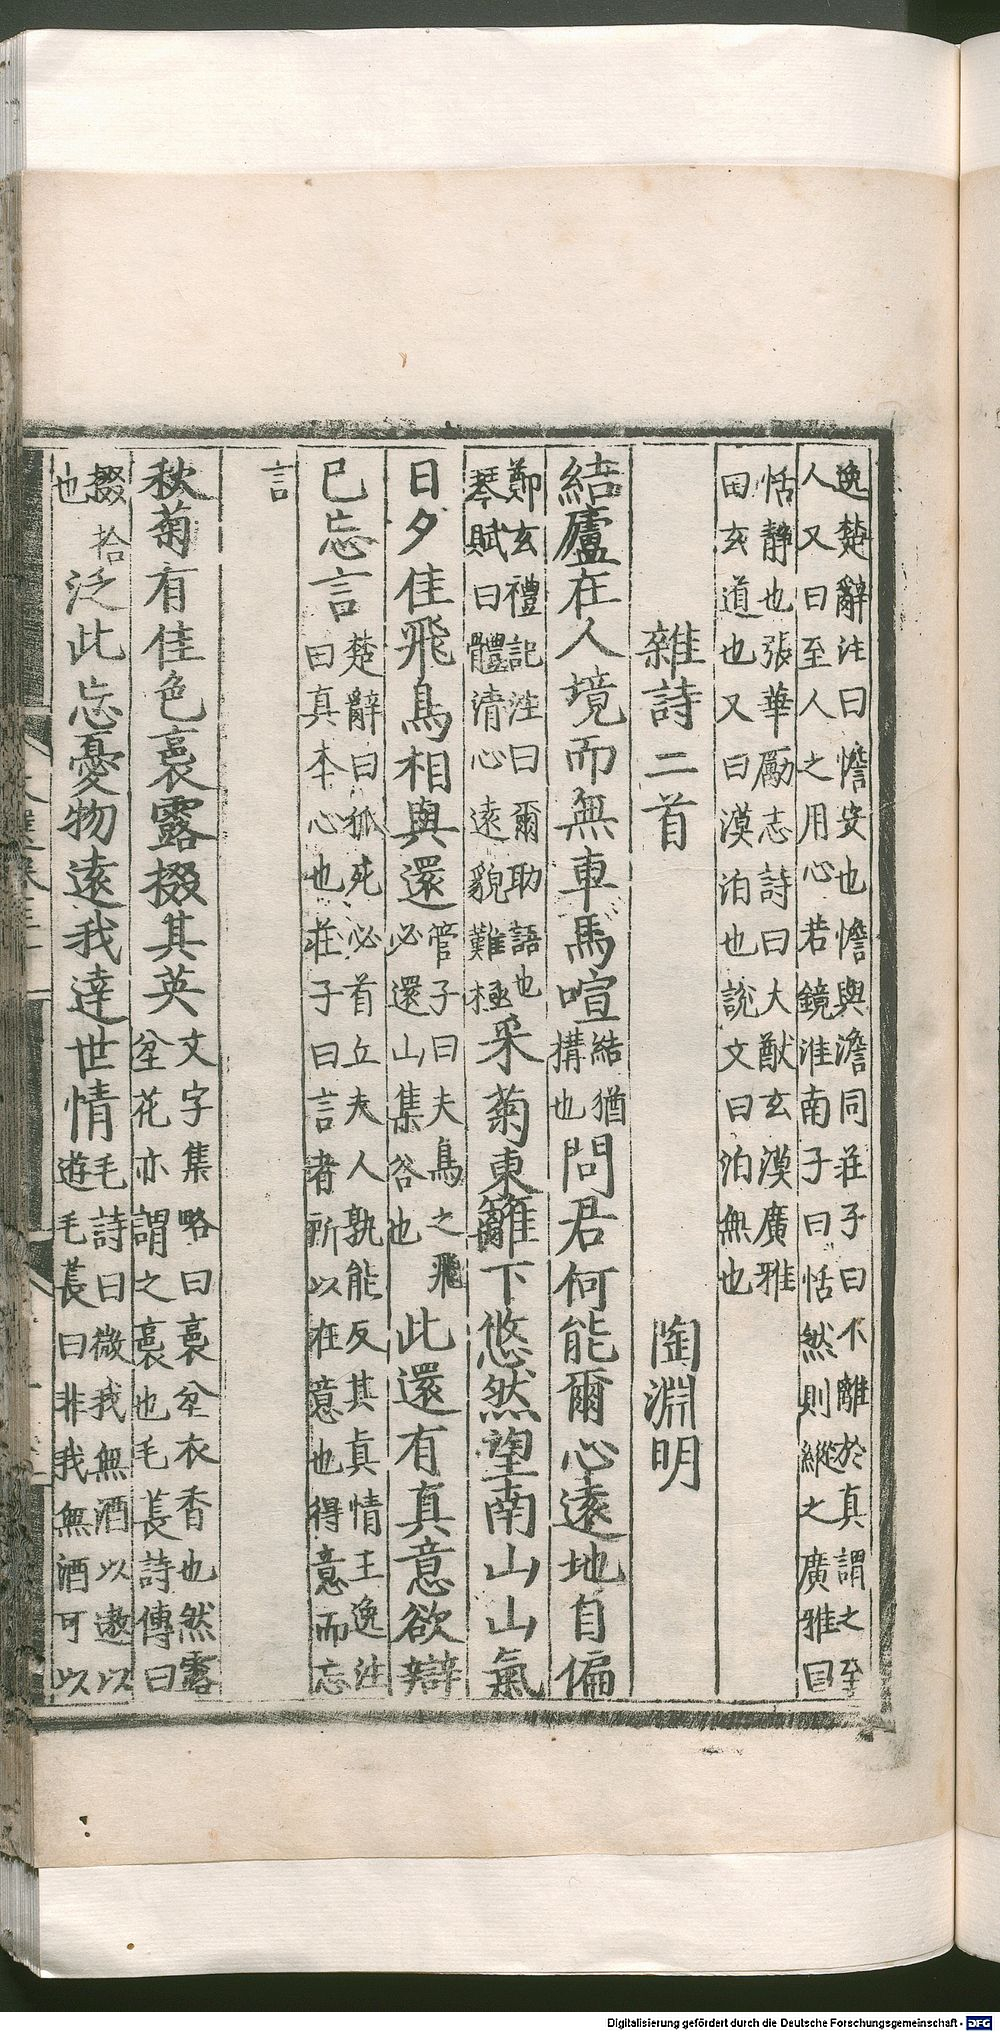 逸楚辭注曰憺安也憺與澹同莊子曰不離於真謂之至
人又曰至人之用心若鏡淮南子曰恬然則縱之廣雅曰
恬靜也張華勵志詩曰大猷玄漠廣雅
曰玄道也又曰漠泊也說文曰泊無也
雜詩二首 陶淵明
結廬在人境而無車馬喧結猶構也問君何能爾心遠地自偏
鄭玄禮記注曰爾助語也琴賦曰體清心遠邈難極采菊東籬下悠然望南山山氣
日夕佳飛鳥相與還管子曰夫鳥之飛必還山集谷也此還有真意欲辯
已忘言楚辭曰狐死必首丘夫人孰能反其真情王逸注曰真本心也莊子曰言者所以在意也得意而忘
言
秋菊有佳色裛露掇其英文字集略曰裛坌衣香也然露坌花亦謂之裛也毛萇詩傳曰
掇拾也泛此忘憂物遠我達世情毛詩曰微我無酒以遨以遊毛萇曰非我無酒可以
Digitalisierung gefördert durch die Deutsche Forschungsgemeinschaft - DFG